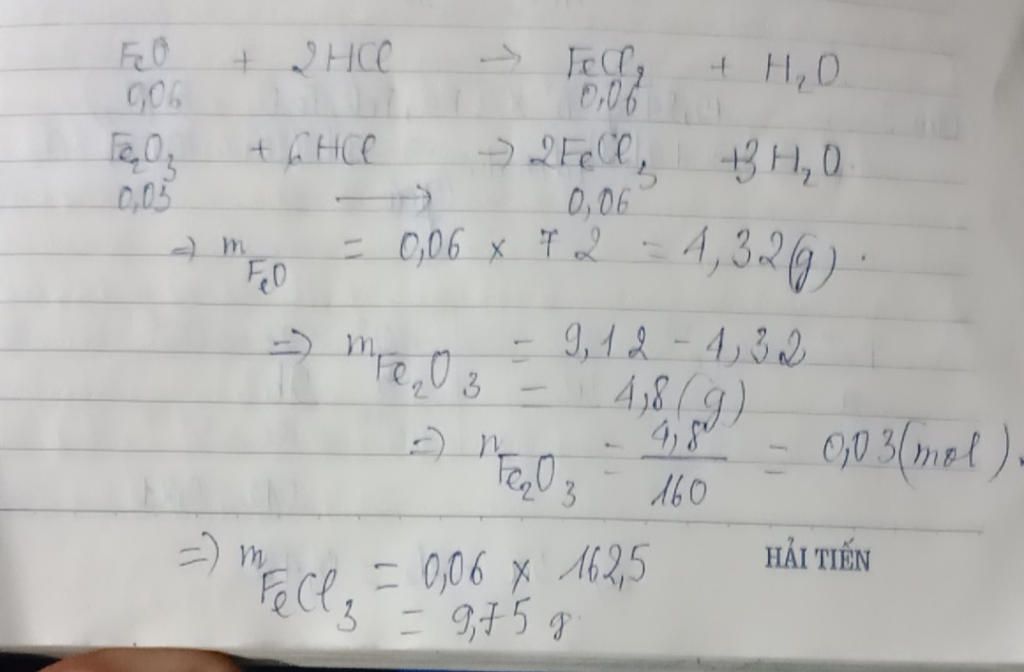 FeO + 2HCl → FeCl₂ + H₂O
0,06 0,06
Fe₂O₃ + 6HCl → 2FeCl₃ + 3H₂O.
0,03 → 0,06
⇒ m FeO = 0,06 × 72 = 4,32(g).
⇒ m Fe₂O₃ = 9,12 - 4,32
= 4,8(g)
⇒ n Fe₂O₃ = 4,8/160 = 0,03(mol).
HẢI TIẾN
⇒ m FeCl₃ = 0,06 × 162,5
= 9,75 g